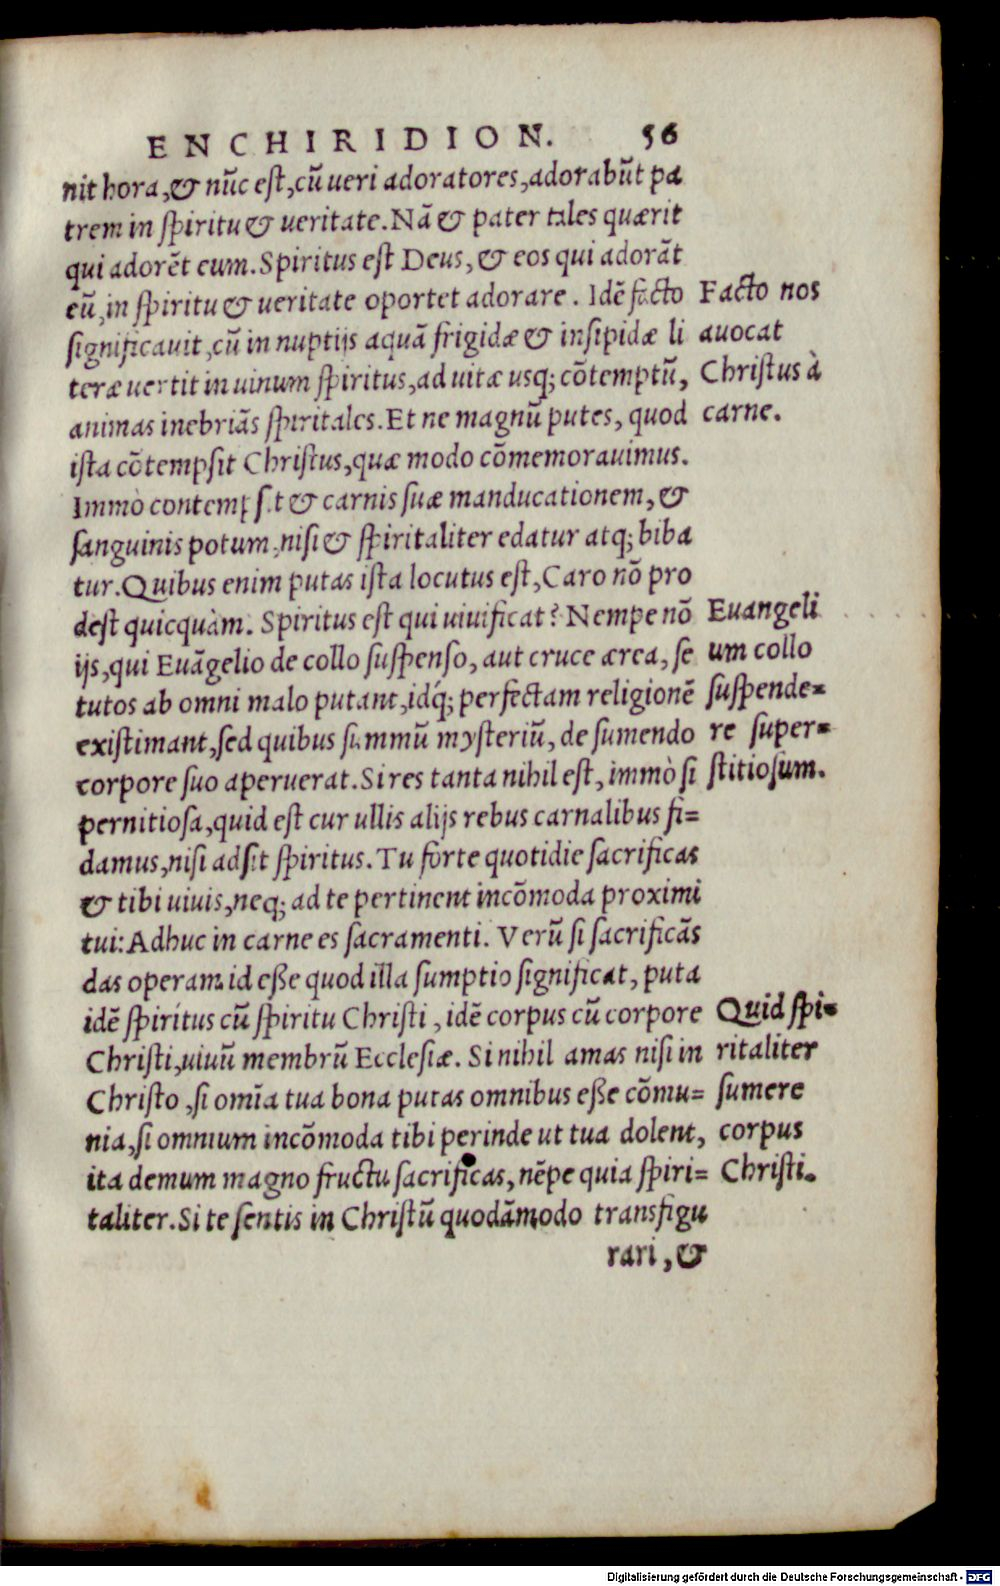 ENCHIRIDION. 56
nit hora, & nūc est, cū ueri adoratores, adorabūt pa
trem in spiritu & ueritate. Nā & pater tales quærit
qui adorēt eum. Spiritus est Deus, & eos qui adorāt
eū, in spiritu & ueritate oportet adorare. Idē facto
significauit, cū in nuptijs aquā frigidæ & insipidæ li
teræ uertit in uinum spiritus, ad uitæ usq; cōtemptū,
animas inebriās spiritales. Et ne magnū putes, quod
ista cōtempsit Christus, quæ modo cōmemorauimus.
Immò contempsit & carnis suæ manducationem, &
sanguinis potum, nisi & spiritaliter edatur atq; biba
tur. Quibus enim putas ista locutus est, Caro nō pro
dest quicquàm. Spiritus est qui uiuificat? Nempe nō
ijs, qui Euāgelio de collo suspenso, aut cruce ærea, se
tutos ab omni malo putant, idq́; perfectam religionē
existimant, sed quibus summū mysteriū, de sumendo
corpore suo aperuerat. Si res tanta nihil est, immò si
pernitiosa, quid est cur ullis alijs rebus carnalibus fi=
damus, nisi adsit spiritus. Tu forte quotidie sacrificas
& tibi uiuis, neq; ad te pertinent incōmoda proximi
tui: Adhuc in carne es sacramenti. Verū si sacrificās
das operam id esse quod illa sumptio significat, puta
idē spiritus cū spiritu Christi, idē corpus cū corpore
Christi, uiuū membrū Ecclesiæ. Si nihil amas nisi in
Christo, si omīa tua bona putas omnibus esse cōmu=
nia, si omnium incōmoda tibi perinde ut tua dolent,
ita demum magno fructu sacrificas, nēpe quia spiri=
taliter. Si te sentis in Christū quodāmodo transfigu
rari, &
Facto nos
auocat
Christus à
carne.
Euangeli
um collo
suspende=
re super=
stitiosum.
Quid spi=
ritaliter
sumere
corpus
Christi.
Digitalisierung gefördert durch die Deutsche Forschungsgemeinschaft - DFG